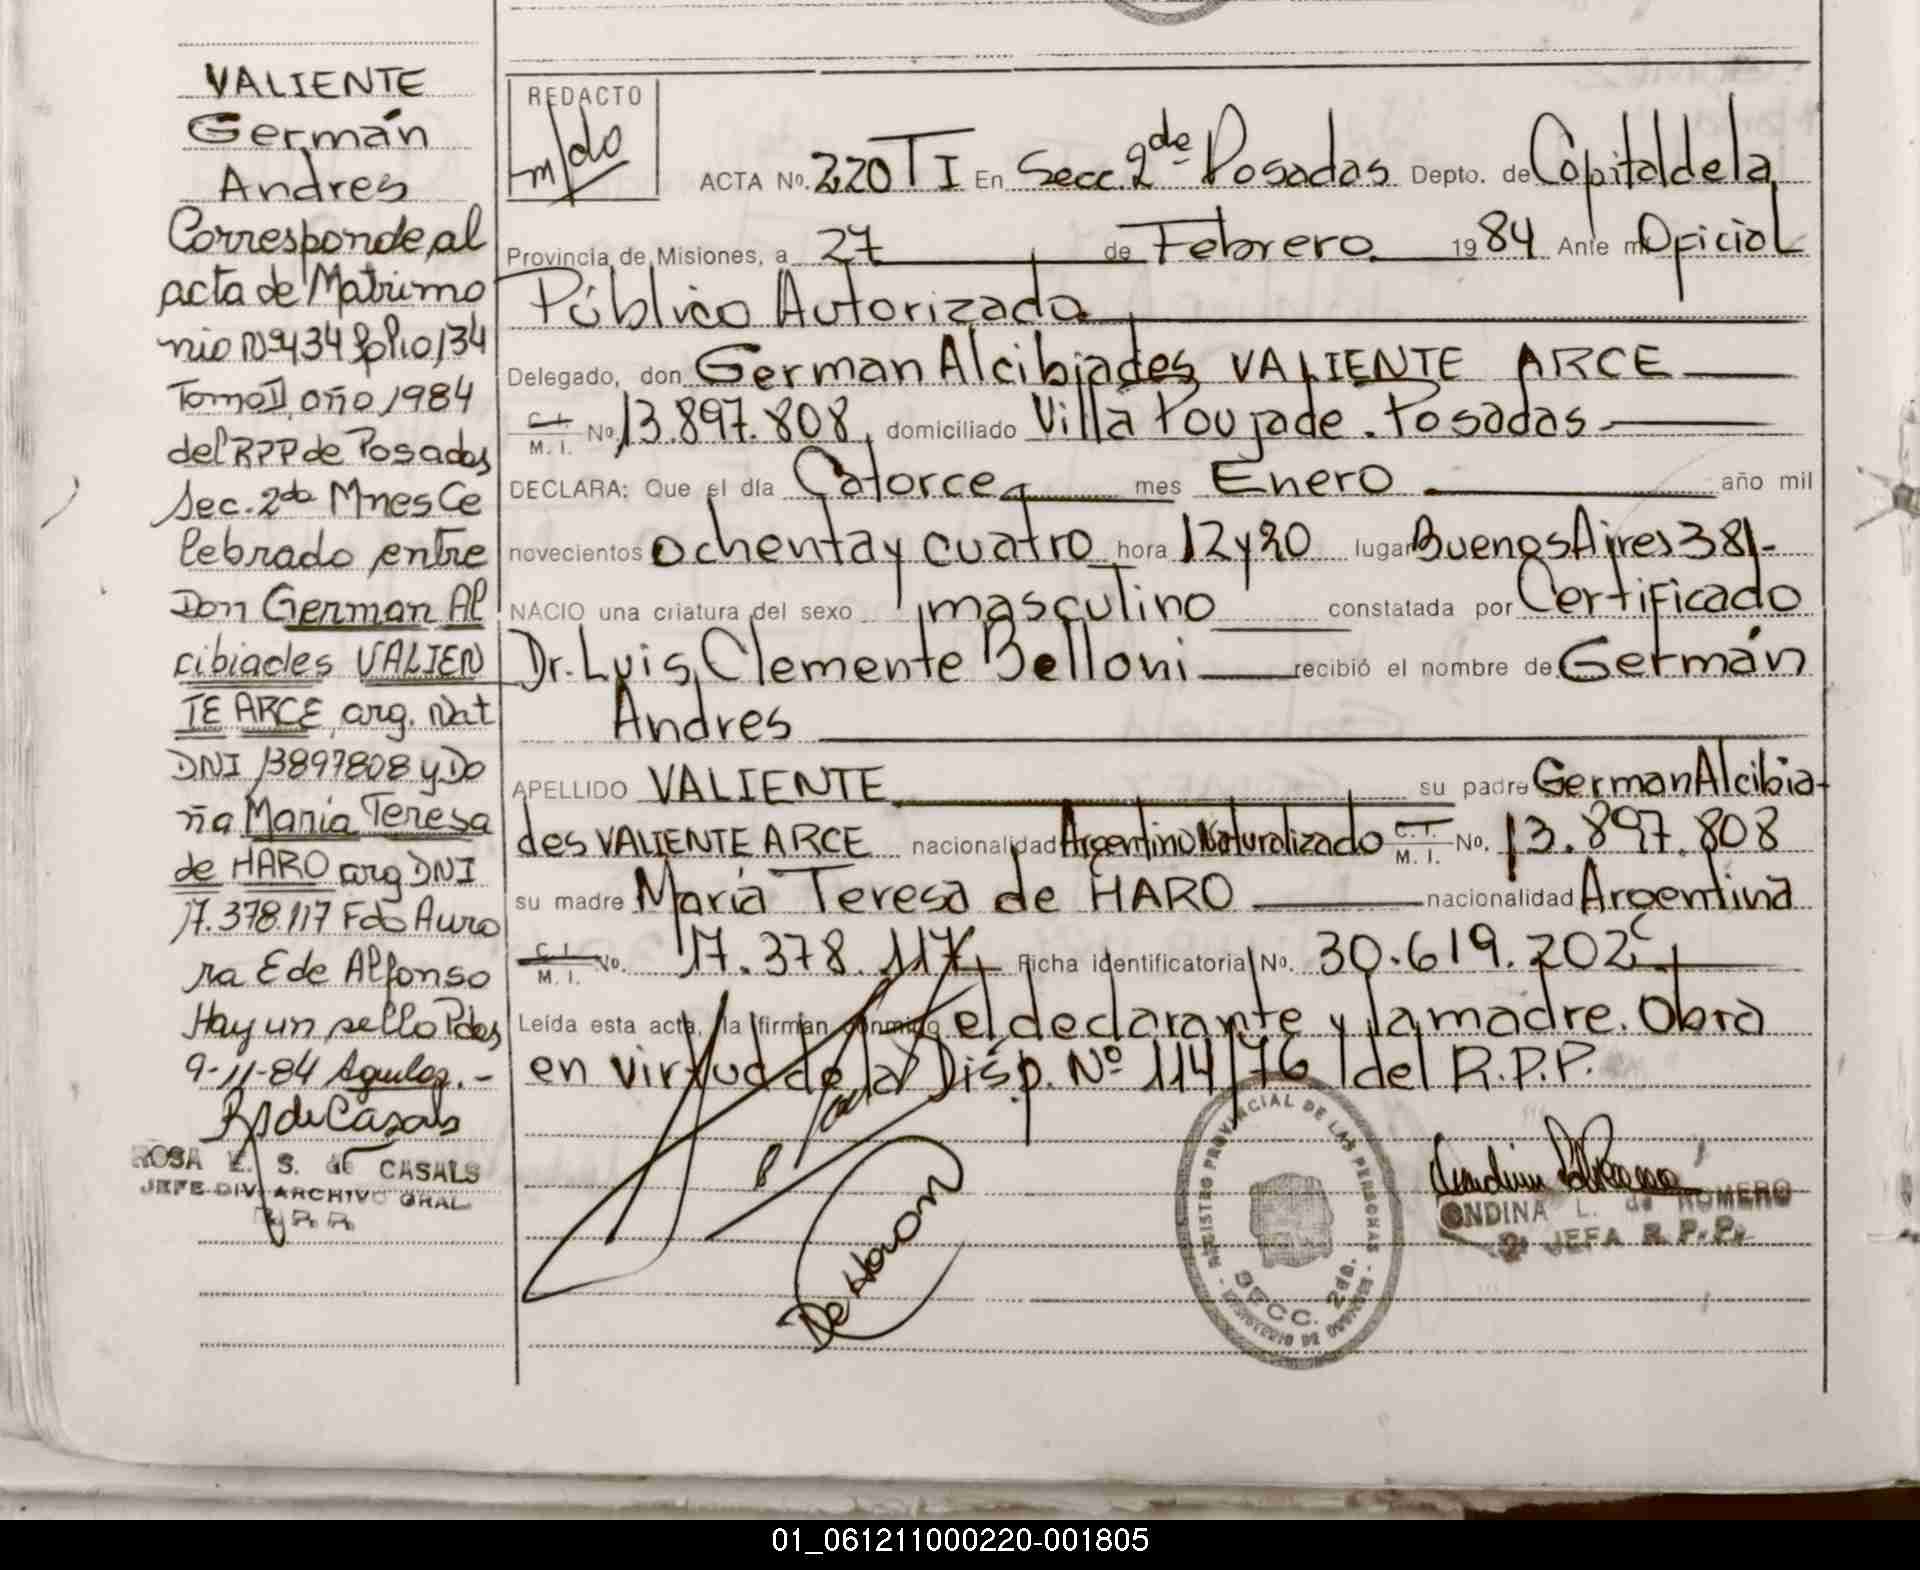 VALIENTE
Germán
Andres
Corresponde al
acta de Matrimo
nio Nº 434 folio 134
Tomo II año 1984
del RPP de Posadas
Sec. 2da Mnes Ce
lebrado entre
Don German Al
cibiades VALIEN
TE ARCE, arg. Nat
DNI 13897808 y Do
ña María Teresa
de HARO arg DNI
17.378.117 Fdo Auro
ra E de Alfonso
Hay un sello Pdas
9-11-84 Aguloz.-
RS de Casals
ROSA E. S. de CASALS
JEFE DIV ARCHIVO GRAL
R.P.P.
REDACTO
m/do
ACTA Nº. 220 TI En Secc. 2de Posadas Depto. de Capital de la
Provincia de Misiones, a 27 de Febrero 1984 Ante mi Oficial
Público Autorizado
Delegado, don German Alcibiades VALIENTE ARCE
C. I. M. I. Nº 13.897.808, domiciliado Villa Poujade. Posadas
DECLARA: Que el día Catorce mes Enero año mil
novecientos ochenta y cuatro hora 12 y 20 lugar Buenos Aires 381-
NACIO una criatura del sexo masculino constatada por Certificado
Dr. Luis Clemente Belloni recibió el nombre de Germán
Andres
APELLIDO VALIENTE su padre German Alcibia-
des VALIENTE ARCE nacionalidad Argentino Naturalizado C. I. M. I. Nº. 13.897.808
su madre María Teresa de HARO nacionalidad Argentina
C. I. M. I. Nº. 17.378.117 Ficha identificatoria Nº. 30.619.202
Leída esta acta, la firman conmigo el declarante y la madre. Obra
en virtud de la Disp. Nº 114/76 del R.P.P.
De Haro
REGISTRO PROVINCIAL DE LAS PERSONAS
SECC. 2da.
ONDINA L. de ROMERO
JEFA R.P.P.
01_061211000220-001805